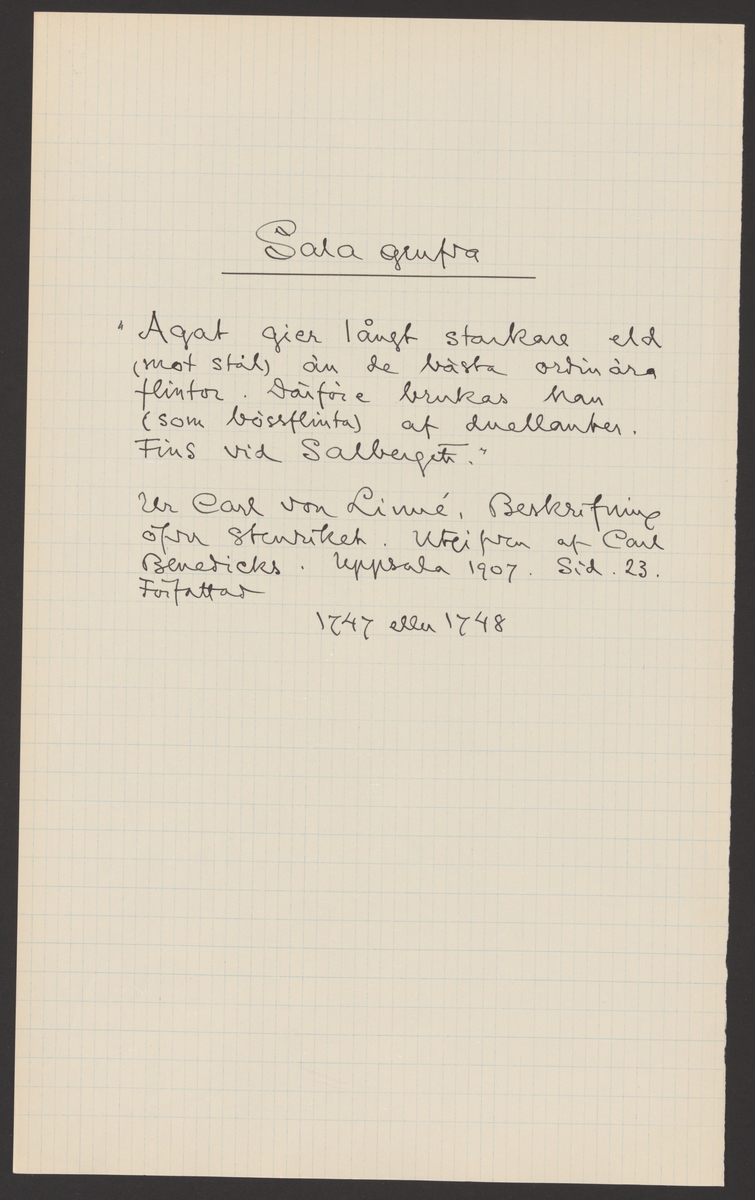 Sala grufva
"Agat gier långt starkare eld
(mot stål) än de bästa ordinära
flintor. Därföre brukas han
(som bössflinta) af duellanter.
Fins vid Salberget."
Ur Carl von Linné, Beskrifning
öfver stenriket. Utgifven af Carl
Benedicks. Uppsala 1907. Sid. 23.
Författad
1747 eller 1748